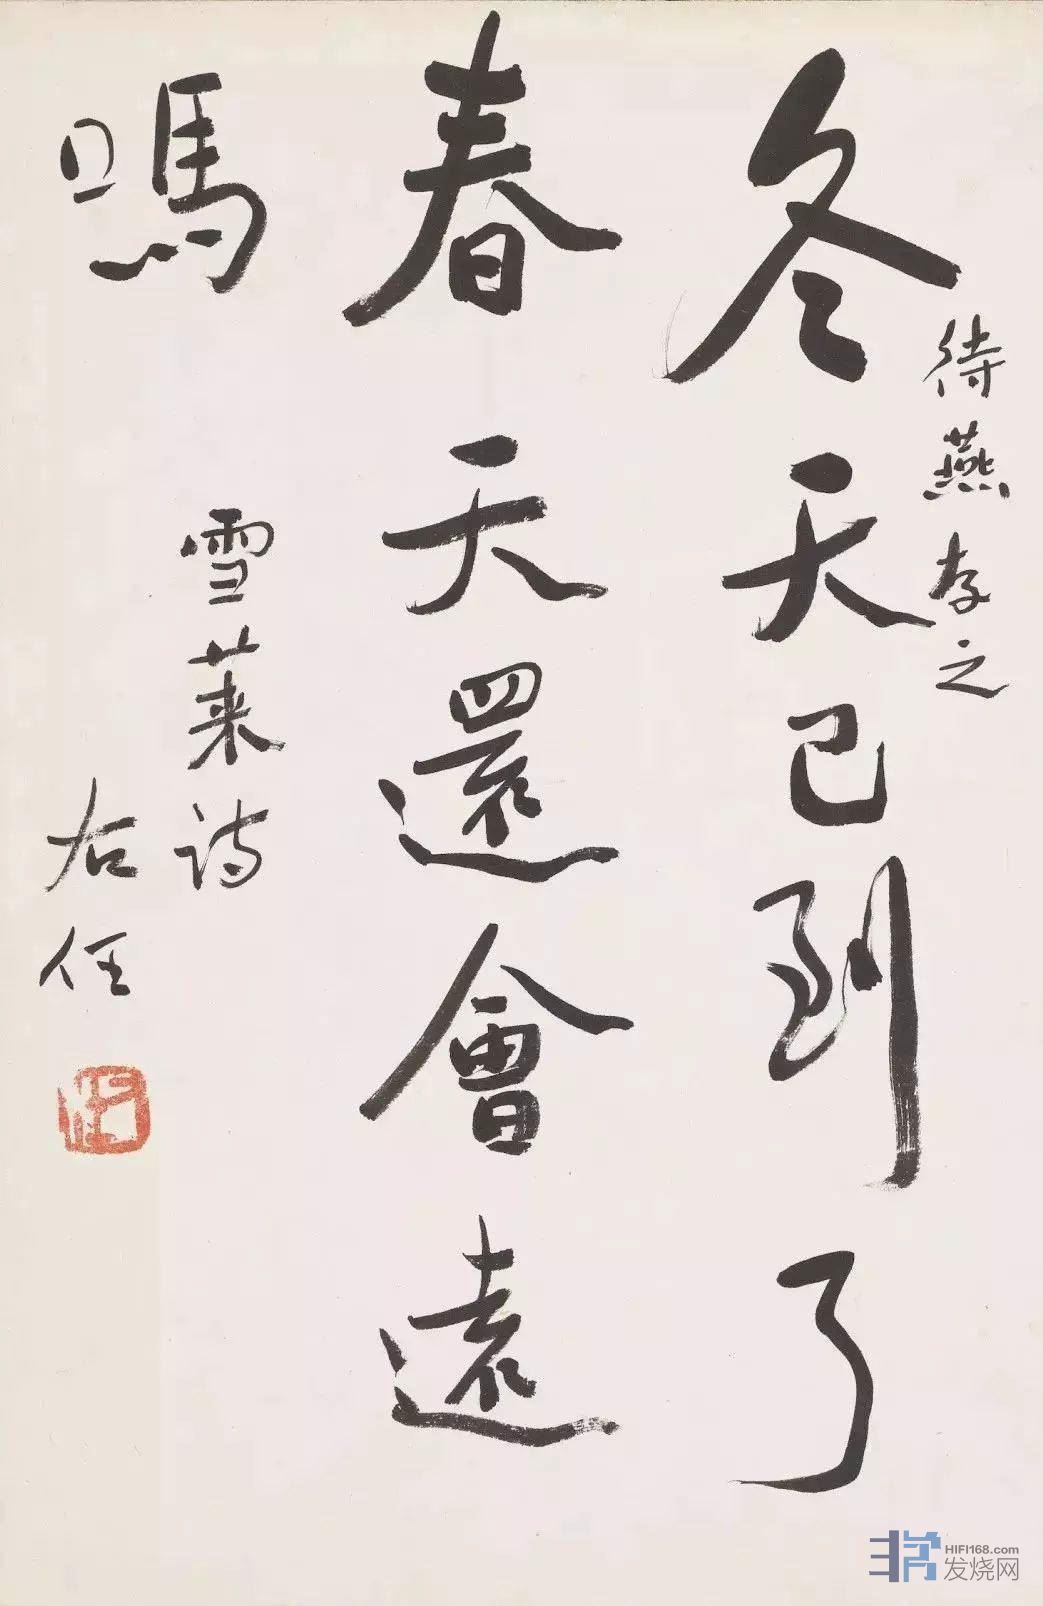 待燕存之
冬天已到了
春天還會遠
嗎
雪萊詩
右任
HIFI168.com
发烧网